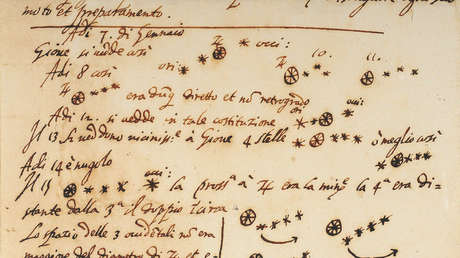 moto Et preparamento.
Adi 7. di Gennaio
Gione si vedde cosi ♃ * occi:
Adi 8 cosi ori: 10. 11.
♃ era dūq diretto et nō retrogrado
ori occi:
Adi 12. si vedde in tale costituzione
Il 13 si veddono vicinissᵉ à Gione 4 stelle ò meglio cosi
Adi 14 è nugolo
Il 15 la prossᵃ à ♃ era la minᵉ la 4ᵃ era di-
stante dalla 3ᵃ il doppio
Lo spazio delle 3 occidetali nō era
maggiore del diametro di ♃ et e-